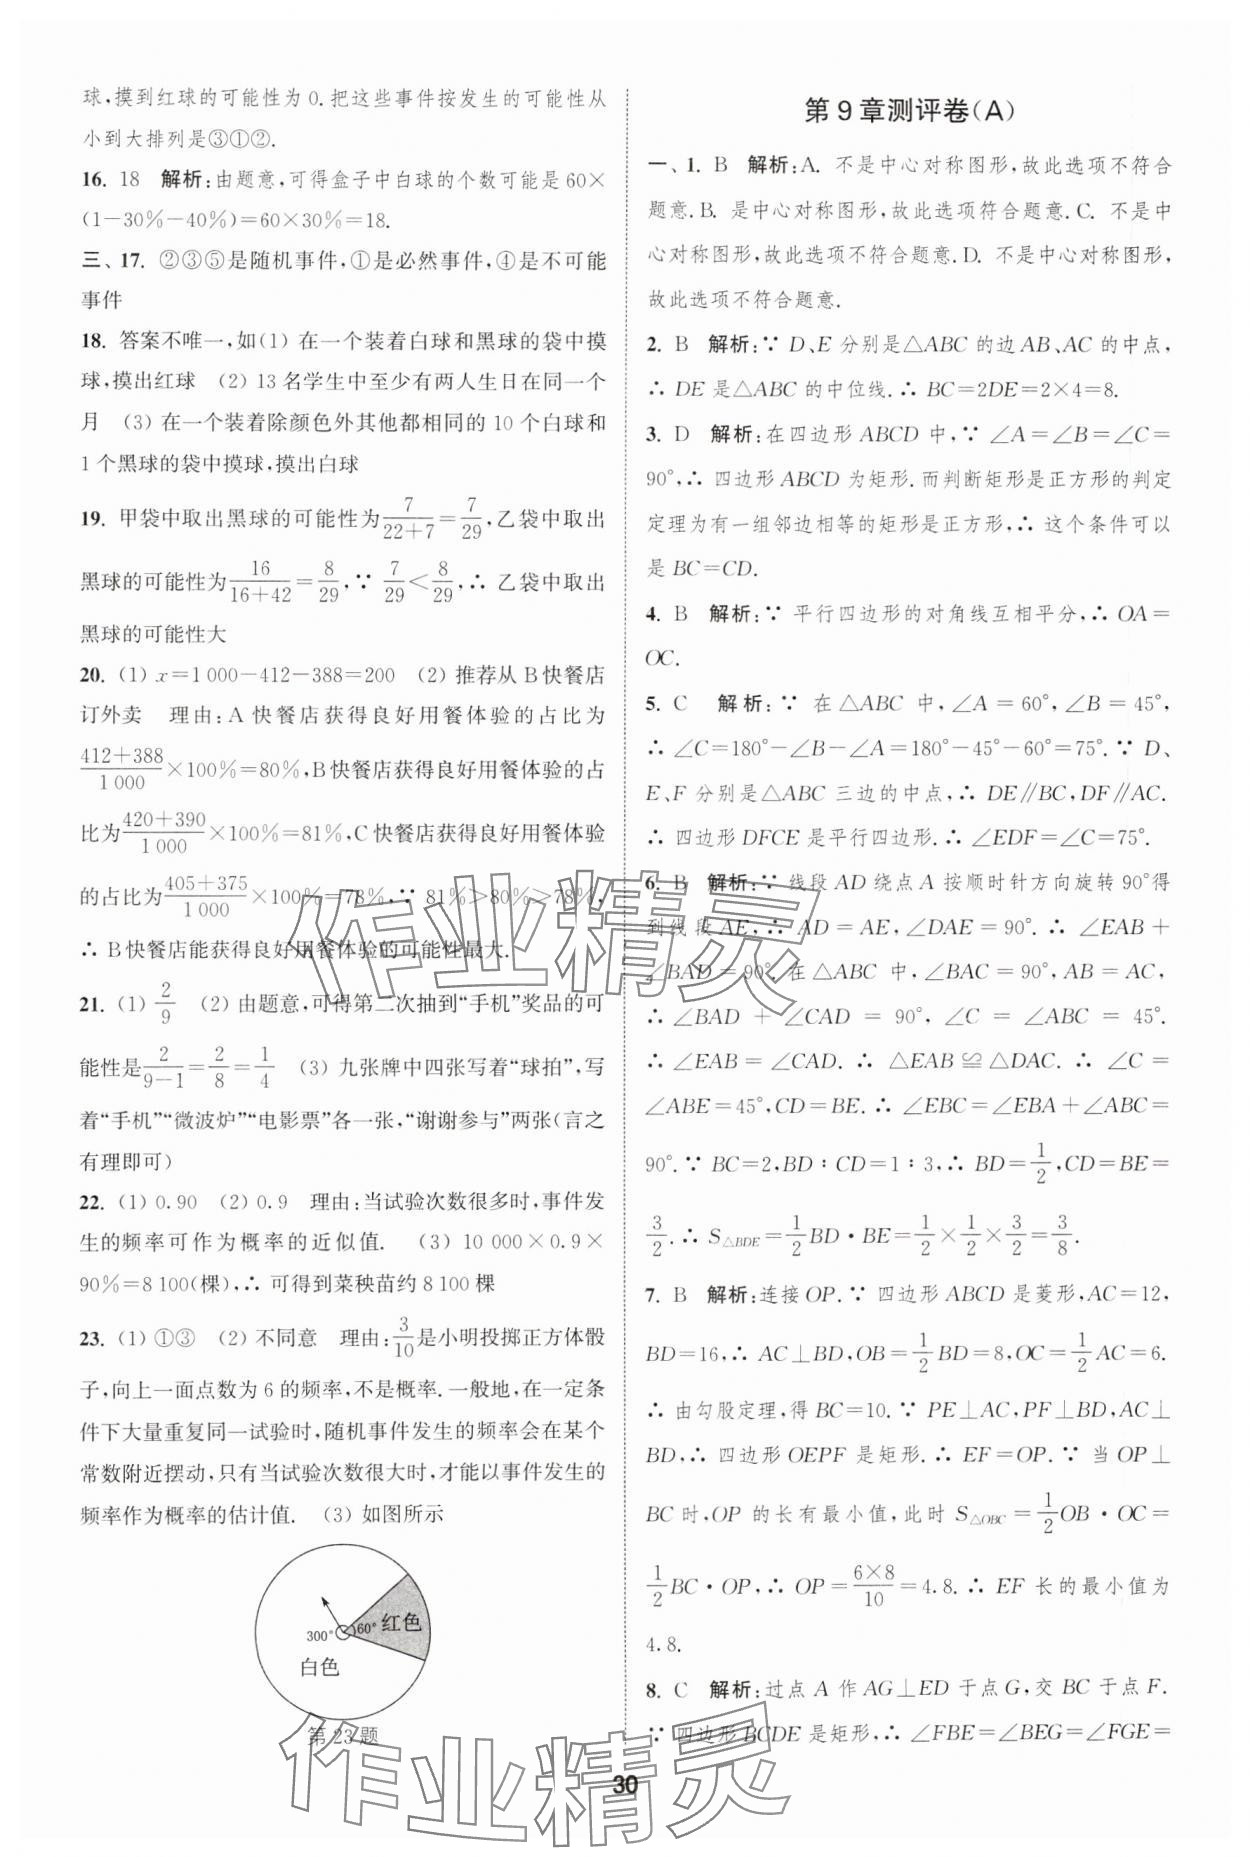 球,摸到红球的可能性为 0. 把这些事件按发生的可能性从
小到大排列是③①②.
16. 18 解析:由题意,可得盒子中白球的个数可能是 60×
(1-30%-40%)=60×30%=18.
三、17. ②③⑤是随机事件,①是必然事件,④是不可能
事件
18. 答案不唯一,如(1) 在一个装着白球和黑球的袋中摸
球,摸出红球 (2) 13 名学生中至少有两人生日在同一个
月 (3) 在一个装着除颜色外其他都相同的 10 个白球和
1 个黑球的袋中摸球,摸出白球
19. 甲袋中取出黑球的可能性为7/(22+7)=7/29,乙袋中取出
黑球的可能性为16/(16+42)=8/29,∵ 7/29<8/29,∴ 乙袋中取出
黑球的可能性大
20. (1) x=1 000-412-388=200 (2) 推荐从 B 快餐店
订外卖 理由:A 快餐店获得良好用餐体验的占比为
(412+388)/1 000×100%=80%,B 快餐店获得良好用餐体验的占
比为(420+390)/1 000×100%=81%,C 快餐店获得良好用餐体验
的占比为(405+375)/1 000×100%=78%,∵ 81%>80%>78%,
∴ B 快餐店能获得良好用餐体验的可能性最大.
21. (1) 2/9 (2) 由题意,可得第二次抽到“手机”奖品的可
能性是2/(9-1)=2/8=1/4 (3) 九张牌中四张写着“球拍”,写
着“手机”“微波炉”“电影票”各一张,“谢谢参与”两张(言之
有理即可)
22. (1) 0.90 (2) 0.9 理由:当试验次数很多时,事件发
生的频率可作为概率的近似值. (3) 10 000×0.9×
90%=8 100(棵),∴ 可得到菜秧苗约 8 100 棵
23. (1) ①③ (2) 不同意 理由:3/10是小明投掷正方体骰
子,向上一面点数为 6 的频率,不是概率. 一般地,在一定条
件下大量重复同一试验时,随机事件发生的频率会在某一个
常数附近摆动,只有当试验次数很大时,才能以事件发生的
频率作为概率的估计值. (3) 如图所示
300° 60° 红色
白色
第 23 题
第 9 章测评卷(A)
一、1. B 解析:A. 不是中心对称图形,故此选项不符合
题意. B. 是中心对称图形,故此选项符合题意. C. 不是中
心对称图形,故此选项不符合题意. D. 不是中心对称图形,
故此选项不符合题意.
2. B 解析:∵ D、E 分别是△ABC 的边 AB、AC 的中点,
∴ DE 是△ABC 的中位线. ∴ BC=2DE=2×4=8.
3. D 解析:在四边形 ABCD 中,∵ ∠A=∠B=∠C=
90°,∴ 四边形 ABCD 为矩形. 而判断矩形是正方形的判定
定理为有一组邻边相等的矩形是正方形,∴ 这个条件可以
是 BC=CD.
4. B 解析:∵ 平行四边形的对角线互相平分,∴ OA=
OC.
5. C 解析:∵ 在△ABC 中,∠A=60°,∠B=45°,
∴ ∠C=180°-∠B-∠A=180°-45°-60°=75°. ∵ D、
E、F 分别是△ABC 三边的中点,∴ DE∥BC,DF∥AC.
∴ 四边形 DFCE 是平行四边形. ∴ ∠EDF=∠C=75°.
6. B 解析:∵ 线段 AD 绕点 A 按顺时针方向旋转 90°得
到线段 AE,∴ AD=AE,∠DAE=90°. ∴ ∠EAB+
∠BAD=90°. 在△ABC 中,∠BAC=90°,AB=AC,
∴ ∠BAD+∠CAD=90°,∠C=∠ABC=45°.
∴ ∠EAB=∠CAD. ∴ △EAB≌△DAC. ∴ ∠C=
∠ABE=45°,CD=BE. ∴ ∠EBC=∠EBA+∠ABC=
90°. ∵ BC=2,BD∶CD=1∶3,∴ BD=1/2,CD=BE=
3/2. ∴ S△BDE=1/2BD·BE=1/2×1/2×3/2=3/8.
7. B 解析:连接 OP. ∵ 四边形 ABCD 是菱形,AC=12,
BD=16,∴ AC⊥BD,OB=1/2BD=8,OC=1/2AC=6.
∴ 由勾股定理,得 BC=10. ∵ PE⊥AC,PF⊥BD,AC⊥
BD,∴ 四边形 OEPF 是矩形. ∴ EF=OP. ∵ 当 OP⊥
BC 时,OP 的长有最小值,此时 S△OBC=1/2OB·OC=
1/2BC·OP,∴ OP=(6×8)/10=4.8. ∴ EF 长的最小值为
4.8.
8. C 解析:过点 A 作 AG⊥ED 于点 G,交 BC 于点 F.
∵ 四边形 BCDE 是矩形,∴ ∠FBE=∠BEG=∠FGE=
30
作业精灵
作业精灵